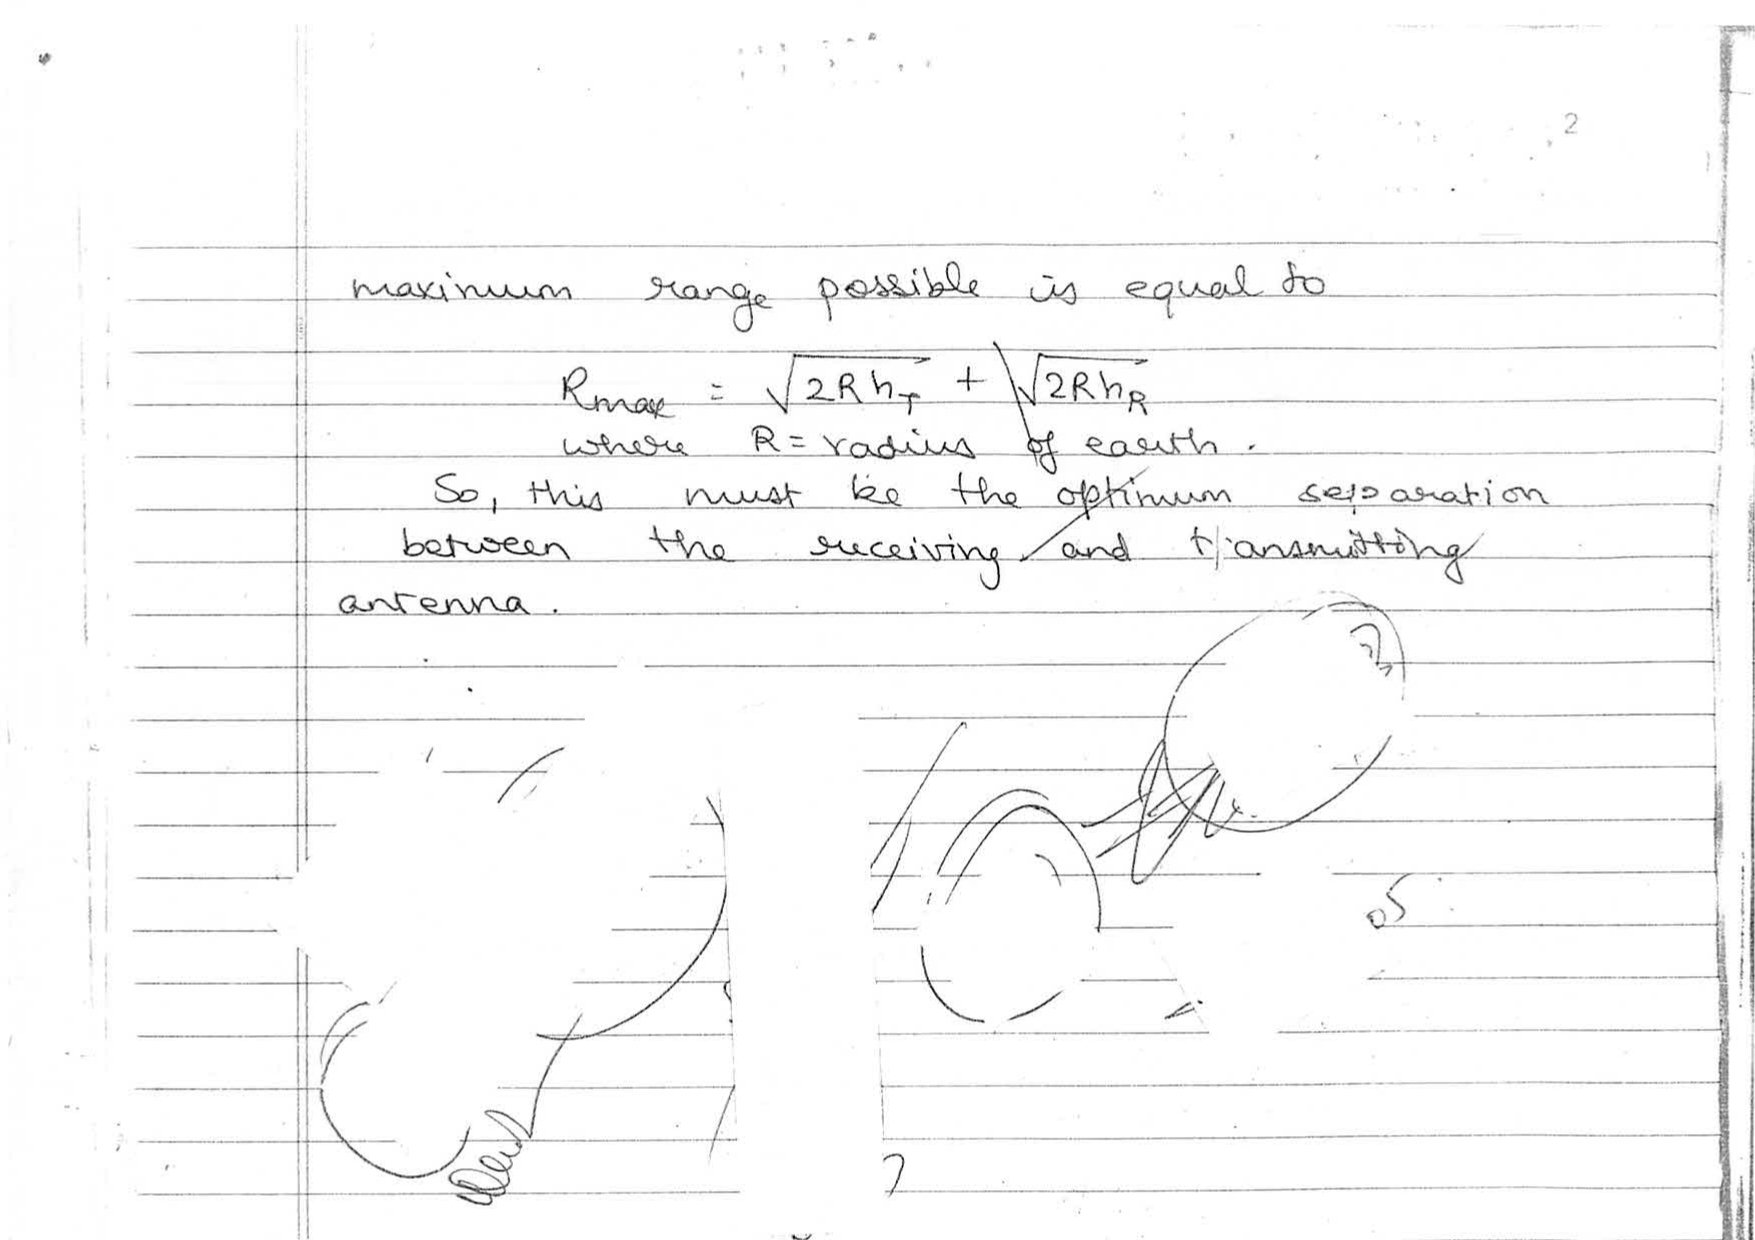 2
maximum range possible is equal to
Rmax = √2RhT + √2RhR
where R = radius of earth.
So, this must be the optimum separation
between the receiving and transmitting
antenna.